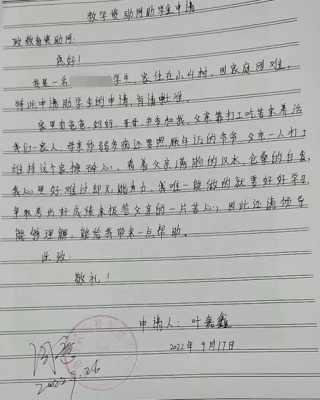 教学资助网助学金申请
致教育资助网:
您好!
我是一名 学生,家住在小山村,因家庭困难,
特此申请助学金的申请 肯请批准。
家里有爸爸,妈妈,
我们一家人,母亲体弱多病还要照顾年迈的爷爷,父亲一人打工
维持这个家 看着父亲满脸的汗水,仓桑的白发,
我心里好难过却无能为力,我唯一能做的就是好好学习
争取考出好成绩来报答父亲的一片苦心,因此还请领导
能够理解,能给我带来一点帮助。
此致
敬礼!
申请人:叶嘉鑫
2022年9月17日
2022.9.26